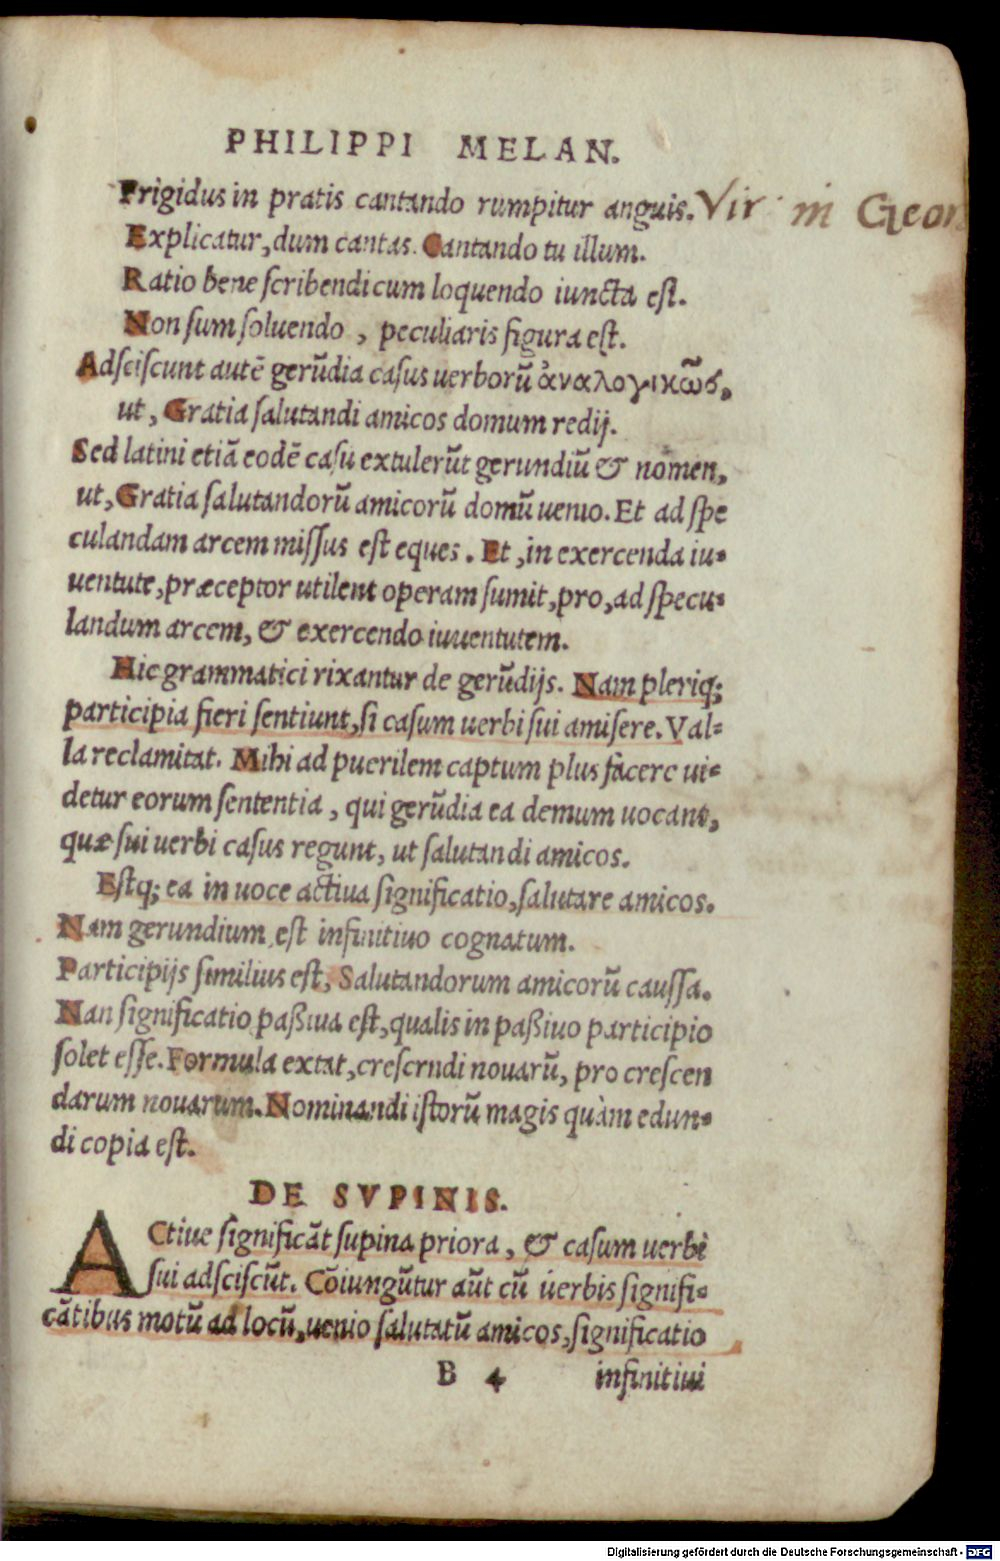 PHILIPPI MELAN.
Frigidus in pratis cantando rumpitur anguis. Vir in Geor
Explicatur, dum cantas. Cantando tu illum.
Ratio bene scribendi cum loquendo iuncta est.
Non sum soluendo, peculiaris figura est.
Adsciscunt autē gerūdia casus uerborū ἀναλογικῶς,
ut, Gratia salutandi amicos domum redij.
Sed latini etiā eodē casu extulerūt gerundiū & nomen,
ut, Gratia salutandorū amicorū domū uenio. Et ad spe
culandam arcem missus est eques. Et, in exercenda iu-
uentute, præceptor utilem operam sumit, pro, ad specu-
landum arcem, & exercendo iuuentutem.
Hic grammatici rixantur de gerūdijs. Nam pleriq;
participia fieri sentiunt, si casum uerbi sui amisere. Val-
la reclamitat. Mihi ad puerilem captum plus facere ui-
detur eorum sententia, qui gerūdia ea demum uocant,
quæ sui uerbi casus regunt, ut salutandi amicos.
Estq; ea in uoce actiua significatio, salutare amicos.
Nam gerundium est infinitiuo cognatum.
Participijs similius est, Salutandorum amicorū caussa.
Nan significatio paßiua est, qualis in paßiuo participio
solet esse. Formula extat, crescrndi nouarū, pro crescen
darum nouarum. Nominandi istorū magis quàm edun-
di copia est.
DE SVPINIS.
ACtiue significāt supina priora, & casum uerbi
sui adsciscūt. Cōiungūtur aūt cū uerbis signifi-
cātibus motū ad locū, uenio salutatū amicos, significatio
B 4 infinitiui
Digitalisierung gefördert durch die Deutsche Forschungsgemeinschaft - DFG